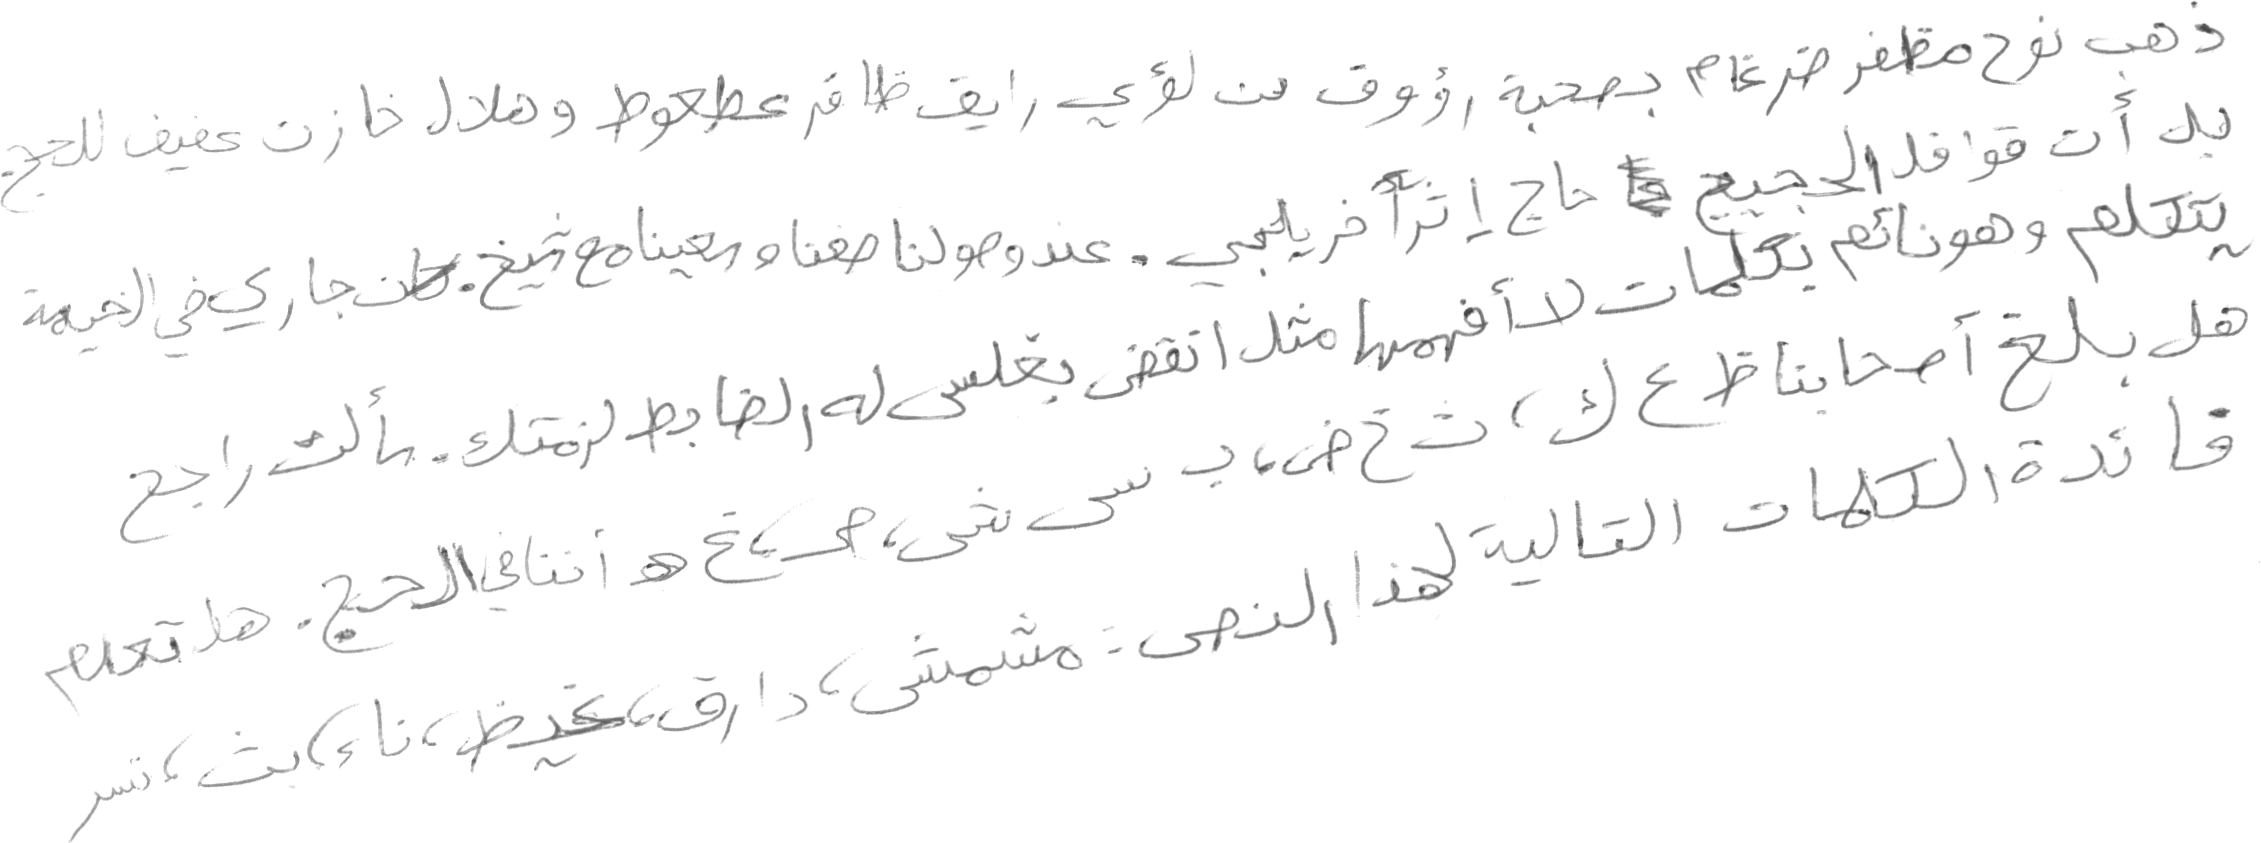 ذهب نوح مظفر ضرغام بصحبة رؤوف بن لؤي رايق ظافر عطعوط وهلال خازن عفيف للحج.
بدأت قوافل الحجيج حاج إثر آخر بالمجي. عند وصولنا صفنا وسعينا مع شيخ. كان جاري في الخيمة
يتكلم وهو نائم بكلمات لا أفهمها مثل انقض بغلس له الضابط لزمتك. سألت راجح
هل بلغ أصحابنا ظ ع ك، ث خ ض، ب س ش، ص، غ هـ أننا في الحج. هل تعلم
فائدة الكلمات التالية لهذا النص: مشمش، دارق، غيظ، ناء، بث، نسر